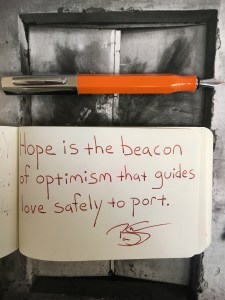 Hope is the beacon
of optimism that guides
love safely to port.